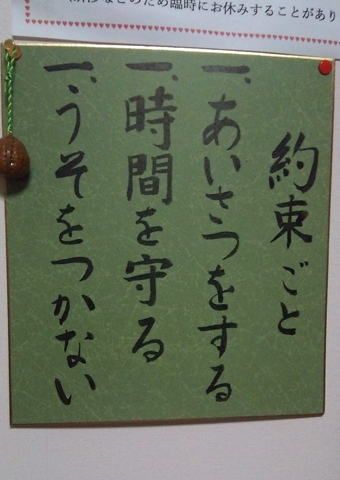 のため臨時にお休みすることがあり
約束ごと
一、あいさつをする
一、時間を守る
一、うそをつかない